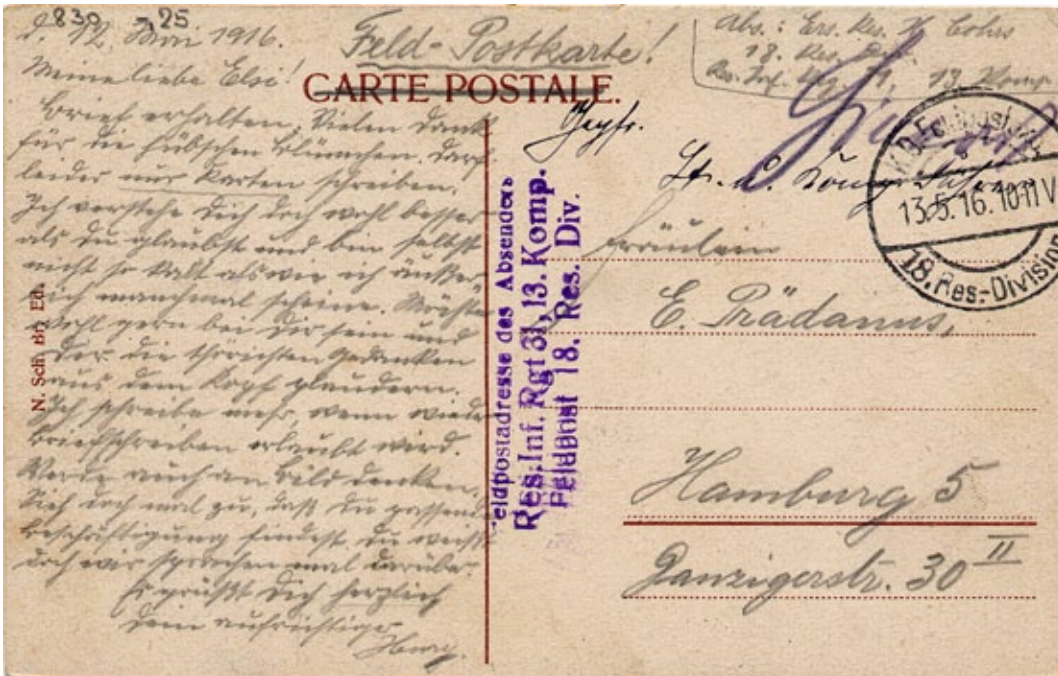 830 25
d. 12. Mai 1916.
Meine liebe Elsi!
Brief erhalten. Vielen Dank
für die hübschen Blümchen. Darf
leider nur Karten schreiben.
Ich verstehe Dich doch wohl besser
als Du glaubst und bin selbst
nicht so kalt als wie ich äußer-
lich manchmal scheine. Möchte
wohl gern bei Dir sein und
Dir die thörichten Gedanken
aus dem Kopf plaudern.
Ich schreibe mehr, wenn wieder
Briefschreiben erlaubt wird.
Werde auch an Bild denken.
Sieh doch mal zu, daß Du passende
Beschäftigung findest. Du weißt
doch wir sprachen mal darüber.
Es grüßt Dich herzlich
Dein aufrichtiger
N. Sch. Bh Ed.
Feld-Postkarte!
CARTE POSTALE.
Abs.: Ers. Res. H. Cohrs
18. Res. Div.
Res. Inf. Rg. 31, 13. Komp.
Geprf.
K.D. Feldpost
13.5.16.10-11V
18. Res.-Division
eldpostadresse des Absenders
Res. Inf. Rgt 31, 13. Komp.
Feldpost 18. Res. Div.
Fräulein
E. Prädanus,
Hamburg 5
Danzigerstr. 30 II